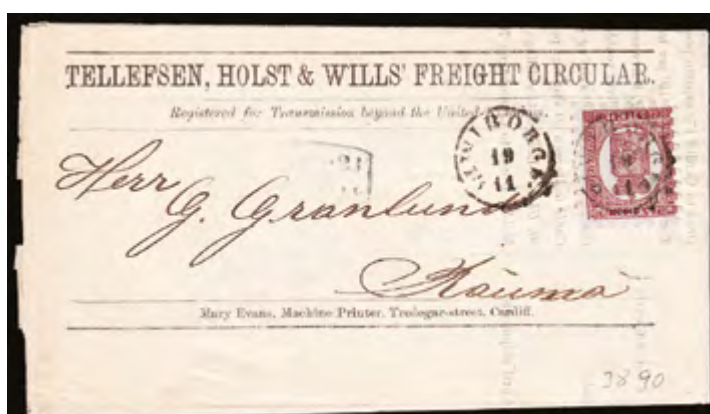 TELLEFSEN, HOLST & WILLS' FREIGHT CIRCULAR.
Registered for Transmission beyond the United
WIBORG
19
11
Herr
G. Granlund
Raumo
Mary Evans, Machine Printer, Tredegar-street, Cardiff.
3890